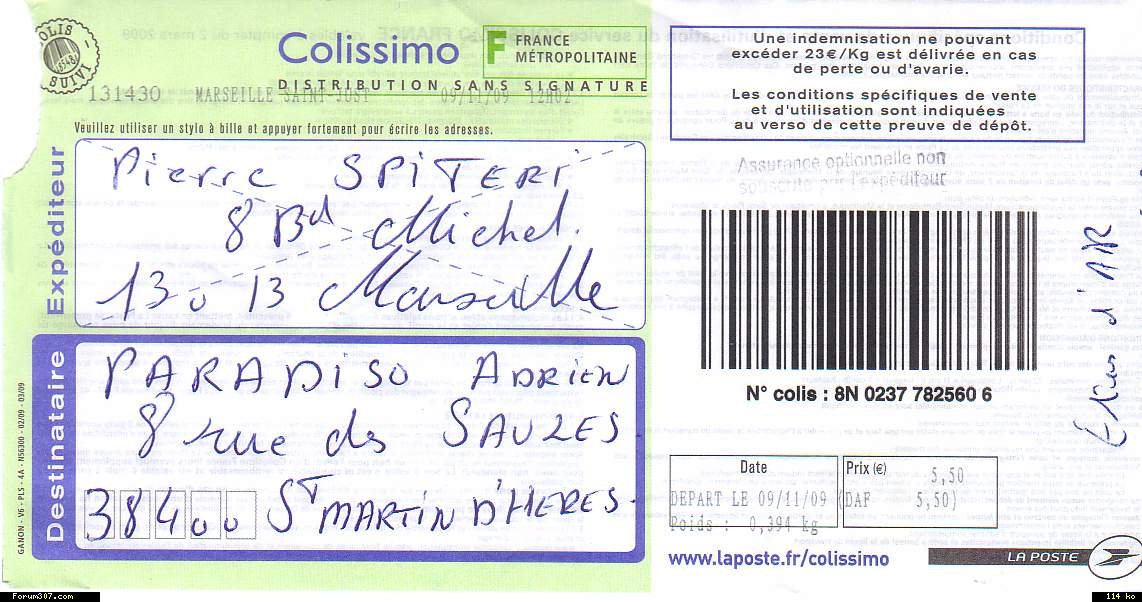 COLIS
SUIVI
Colissimo
F FRANCE
MÉTROPOLITAINE
DISTRIBUTION SANS SIGNATURE
131430 MARSEILLE SAINT-JUST 09/11/09 12H02
Veuillez utiliser un stylo à bille et appuyer fortement pour écrire les adresses.
Expéditeur
Pierre SPITERI
8 Bd Michel.
13013 Marseille
Destinataire
PARADISO ADRIEN
8 rue des SAULES.
38400 ST MARTIN D'HERES.
GANON - V6 - PLS - 4A - N56300 - 02/09 - 03/09
Une indemnisation ne pouvant
excéder 23€/Kg est délivrée en cas
de perte ou d'avarie.
Les conditions spécifiques de vente
et d'utilisation sont indiquées
au verso de cette preuve de dépôt.
Assurance optionnelle non
souscrite par l'expéditeur
N° colis : 8N 0237 782560 6
d'AR
Date
DEPART LE 09/11/09
Poids : 0,394 kg
Prix (€)
5,50
(DAF 5,50)
www.laposte.fr/colissimo
LA POSTE
Forum307.com
114 ko